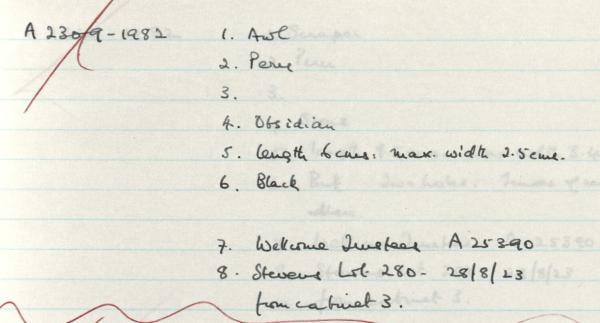 A 2309-1982
1. Awl
2. Peru
3.
4. Obsidian
5. length 6cms. max. width 2.5cms.
6. Black
7. Wellcome Trustees A 25390
8. Stevens Lot 280 - 28/8/23
from cabinet 3.